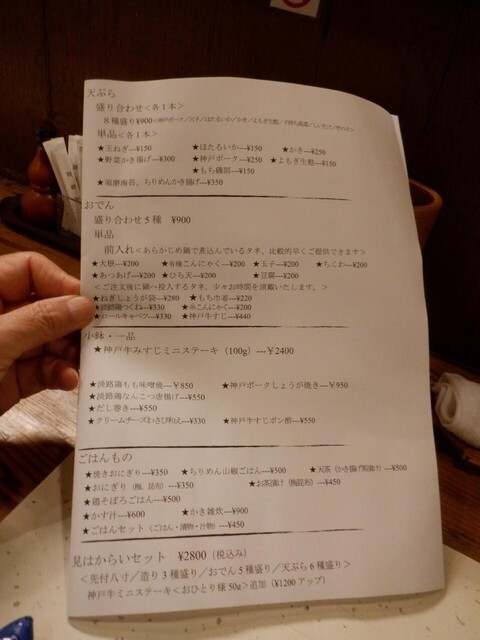 天ぷら
盛り合わせ<各1本>
8種盛り¥900
単品<各1本>
★玉ねぎ---¥150 ★ほたるいか---¥150 ★かき---¥250
★野菜かき揚げ---¥300 ★神戸ポーク---¥250 ★よもぎ生麩---¥150
★もち磯部---¥150
★須磨海苔、ちりめんかき揚げ---¥350
おでん
盛り合わせ5種 ¥900
単品
前入れ<あらかじめ鍋で煮込んでいるタネ、比較的早くご提供できます>
★大根---¥200 こんにゃく---¥200 ★玉子---¥200 ★ちくわ---¥200
★あつあげ---¥200 ★ひら天---¥200 ★豆腐---¥200
<ご注文後に鍋へ投入するタネ、少々お時間を頂戴いたします。>
★ねぎしょうが袋---¥280 ★もち巾着---¥220
★淡路鶏つくね---¥330 こんにゃく---¥200
ロールキャベツ---¥330 ★神戸牛すじ---¥440
小鉢・一品
★神戸牛みすじミニステーキ(100g)---¥2400
★淡路鶏もも味噌焼---¥850 ★神戸ポークしょうが焼き---¥950
★淡路鶏なんこつ唐揚げ---¥550
★だし巻き---¥550
★クリームチーズわさび和え---¥330 ★神戸牛すじポン酢---¥550
ごはんもの
★焼きおにぎり---¥350 ★ちりめん山椒ごはん---¥500 ★天茶(かき揚げ茶漬け)---¥800
★おにぎり(梅、昆布)---¥350 ★お茶漬け(梅昆布)---¥450
★鶏そぼろごはん---¥500
★かす汁---¥600 ★かき雑炊---¥900
★ごはんセット(ごはん・漬物・汁物)---¥450
見はからいセット ¥2800(税込み)
<先付八寸/造り3種盛り/おでん5種盛り/天ぷら6種盛り>
神戸牛ミニステーキ<おひとり様50g>追加(¥1200アップ)